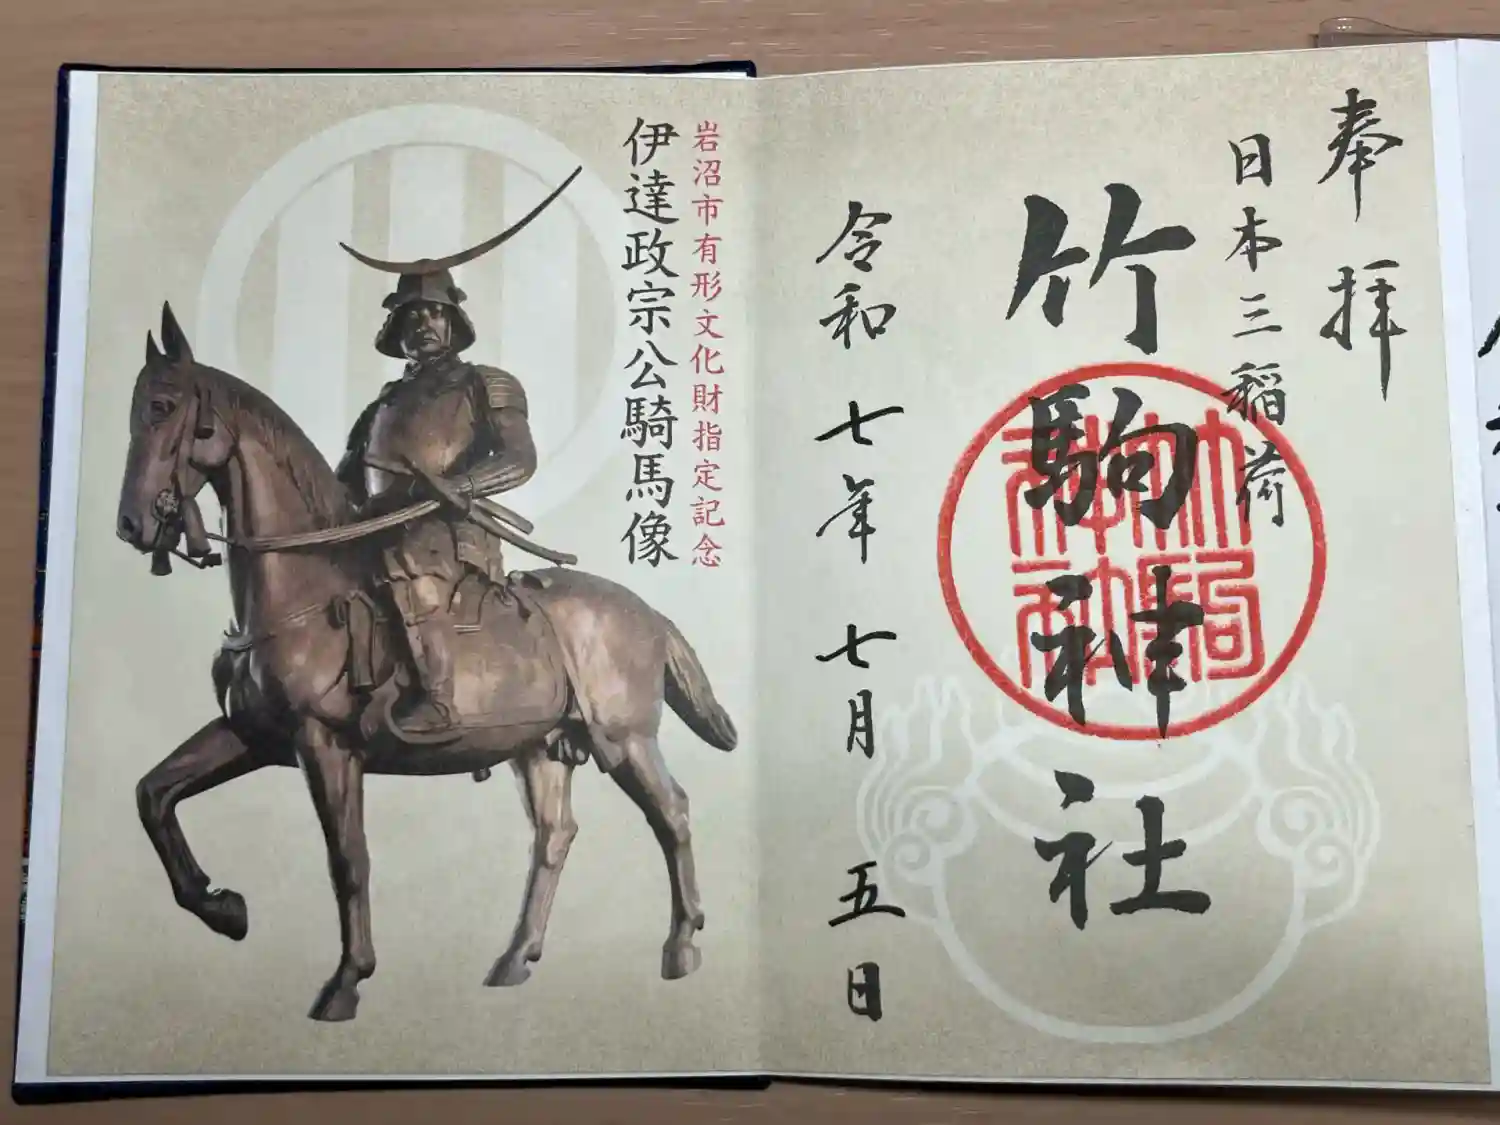 奉拝
日本三稲荷
竹駒神社
令和七年七月五日
竹駒神社
岩沼市有形文化財指定記念
伊達政宗公騎馬像